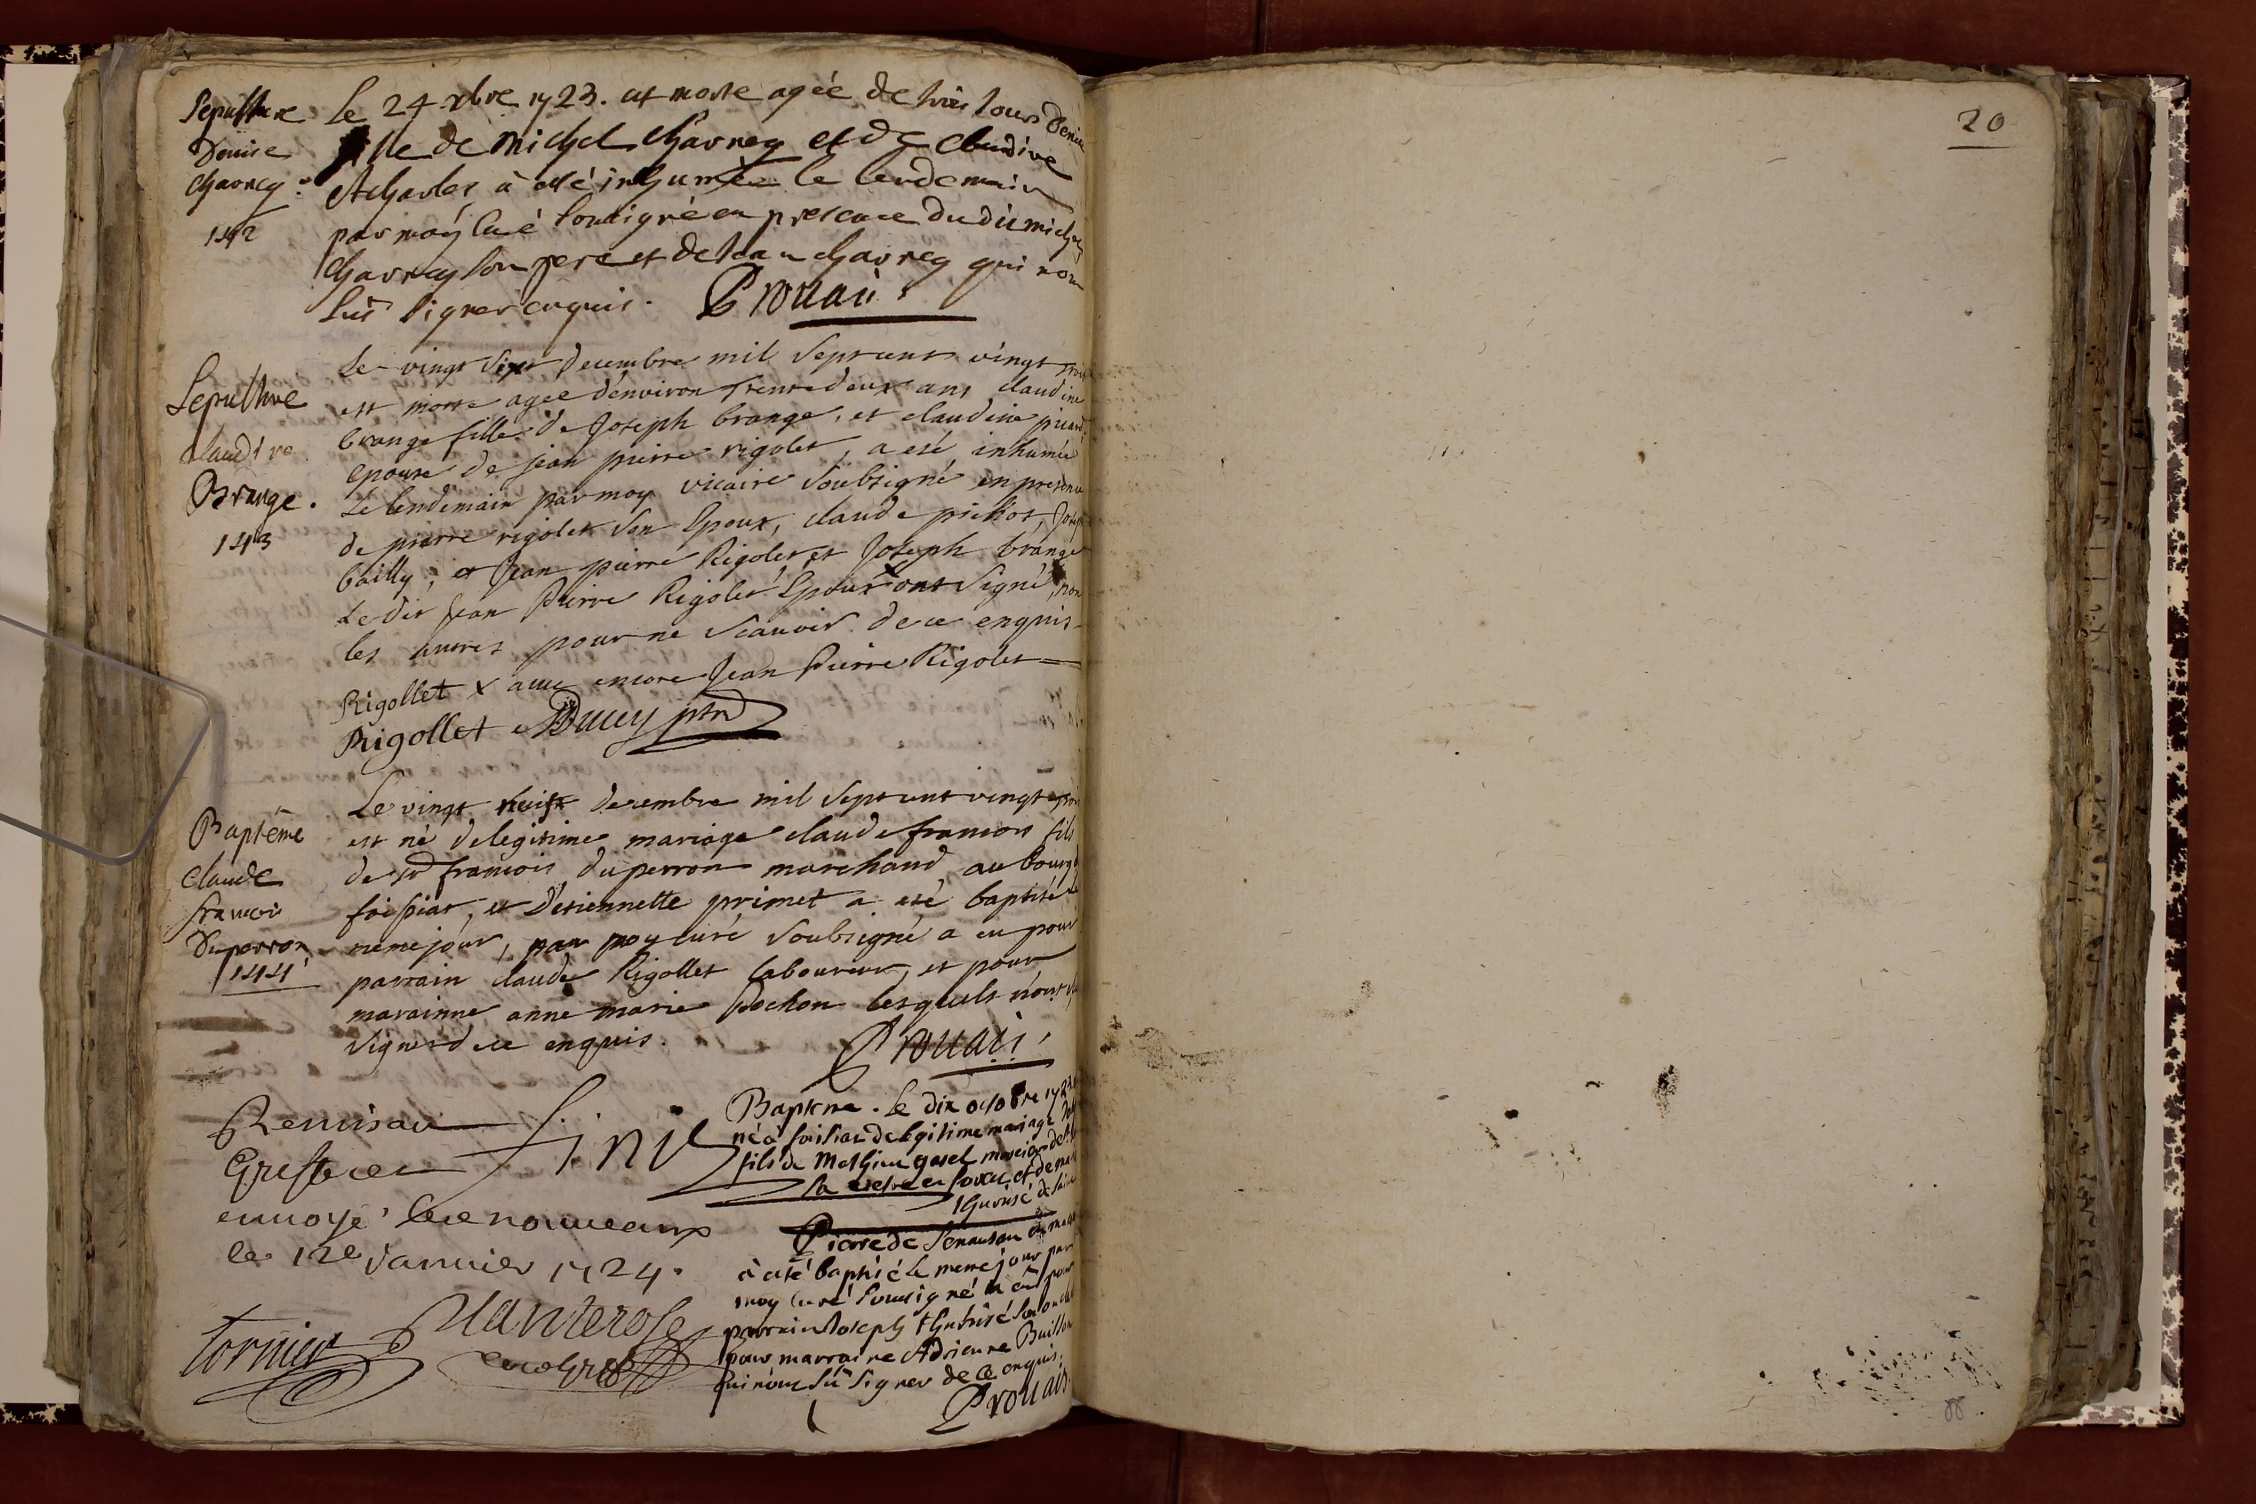 Sepulture
Denise
chavrey
142
Le 24 xbre 1723. est morte agée de trois jours Denise
fille de michel chavrey et de claudine
Acharles à esté inhumée le lendemain
par moy curé soussigné en presence du dit michel
chavrey son pere et de Jean chavrey qui n'ont
sceu signer enquis. Prouais
Sepulture
claudine
Brange.
143
Le vingt sixe decembre mil sept cent vingt trois
est morte agee denviron trente deux ans claudine
brange fille de Joseph brange, et claudine picard
epouse de jean pierre rigolet, a eté inhumée
Le lendemain par moy vicaire soubsigné en presence
de pierre rigolet son Epoux, claude pichot, Joseph
bailly, et Jean pierre Rigolet, et Joseph brange
Le dit Jean Pierre Rigolet Epoux x ont signé, non
les autres pour ne scauoir de ce enquis
Rigollet x avec encore Jean Pierre Rigolet
Rigollet Ducey ptre
Baptême
claude
francois
Duperron
144
Le vingt huit decembre mil sept cent vingt trois
est né de legitime mariage claude francois fils
de sr francois duperron marchand au bourg
foissiat, et d'etiennette primet a eté baptisé
meme jour, par moy curé soubsigné a eu pour
parrain claude Rigollet laboureur, et pour
marainne anne marie Pochon lesquels n'ont sçu
signer de ce enquis.
Prouais
Finis
Remis au
Greffe ce
envoyé
le 12e janvier 1724.
Tornier Planterose
Bapteme. Le dix octobre 1723
né a foissiat de legitime mariage
fils de Mathieu gavel
la
Pierre de Senausan
à esté baptisé le meme jour par
moy curé soussigné a eu pour
parrain Joseph son oncle
pour marraine Adrienne Buisson
qui n'ont sceu signer de ce enquis.
Prouais
20